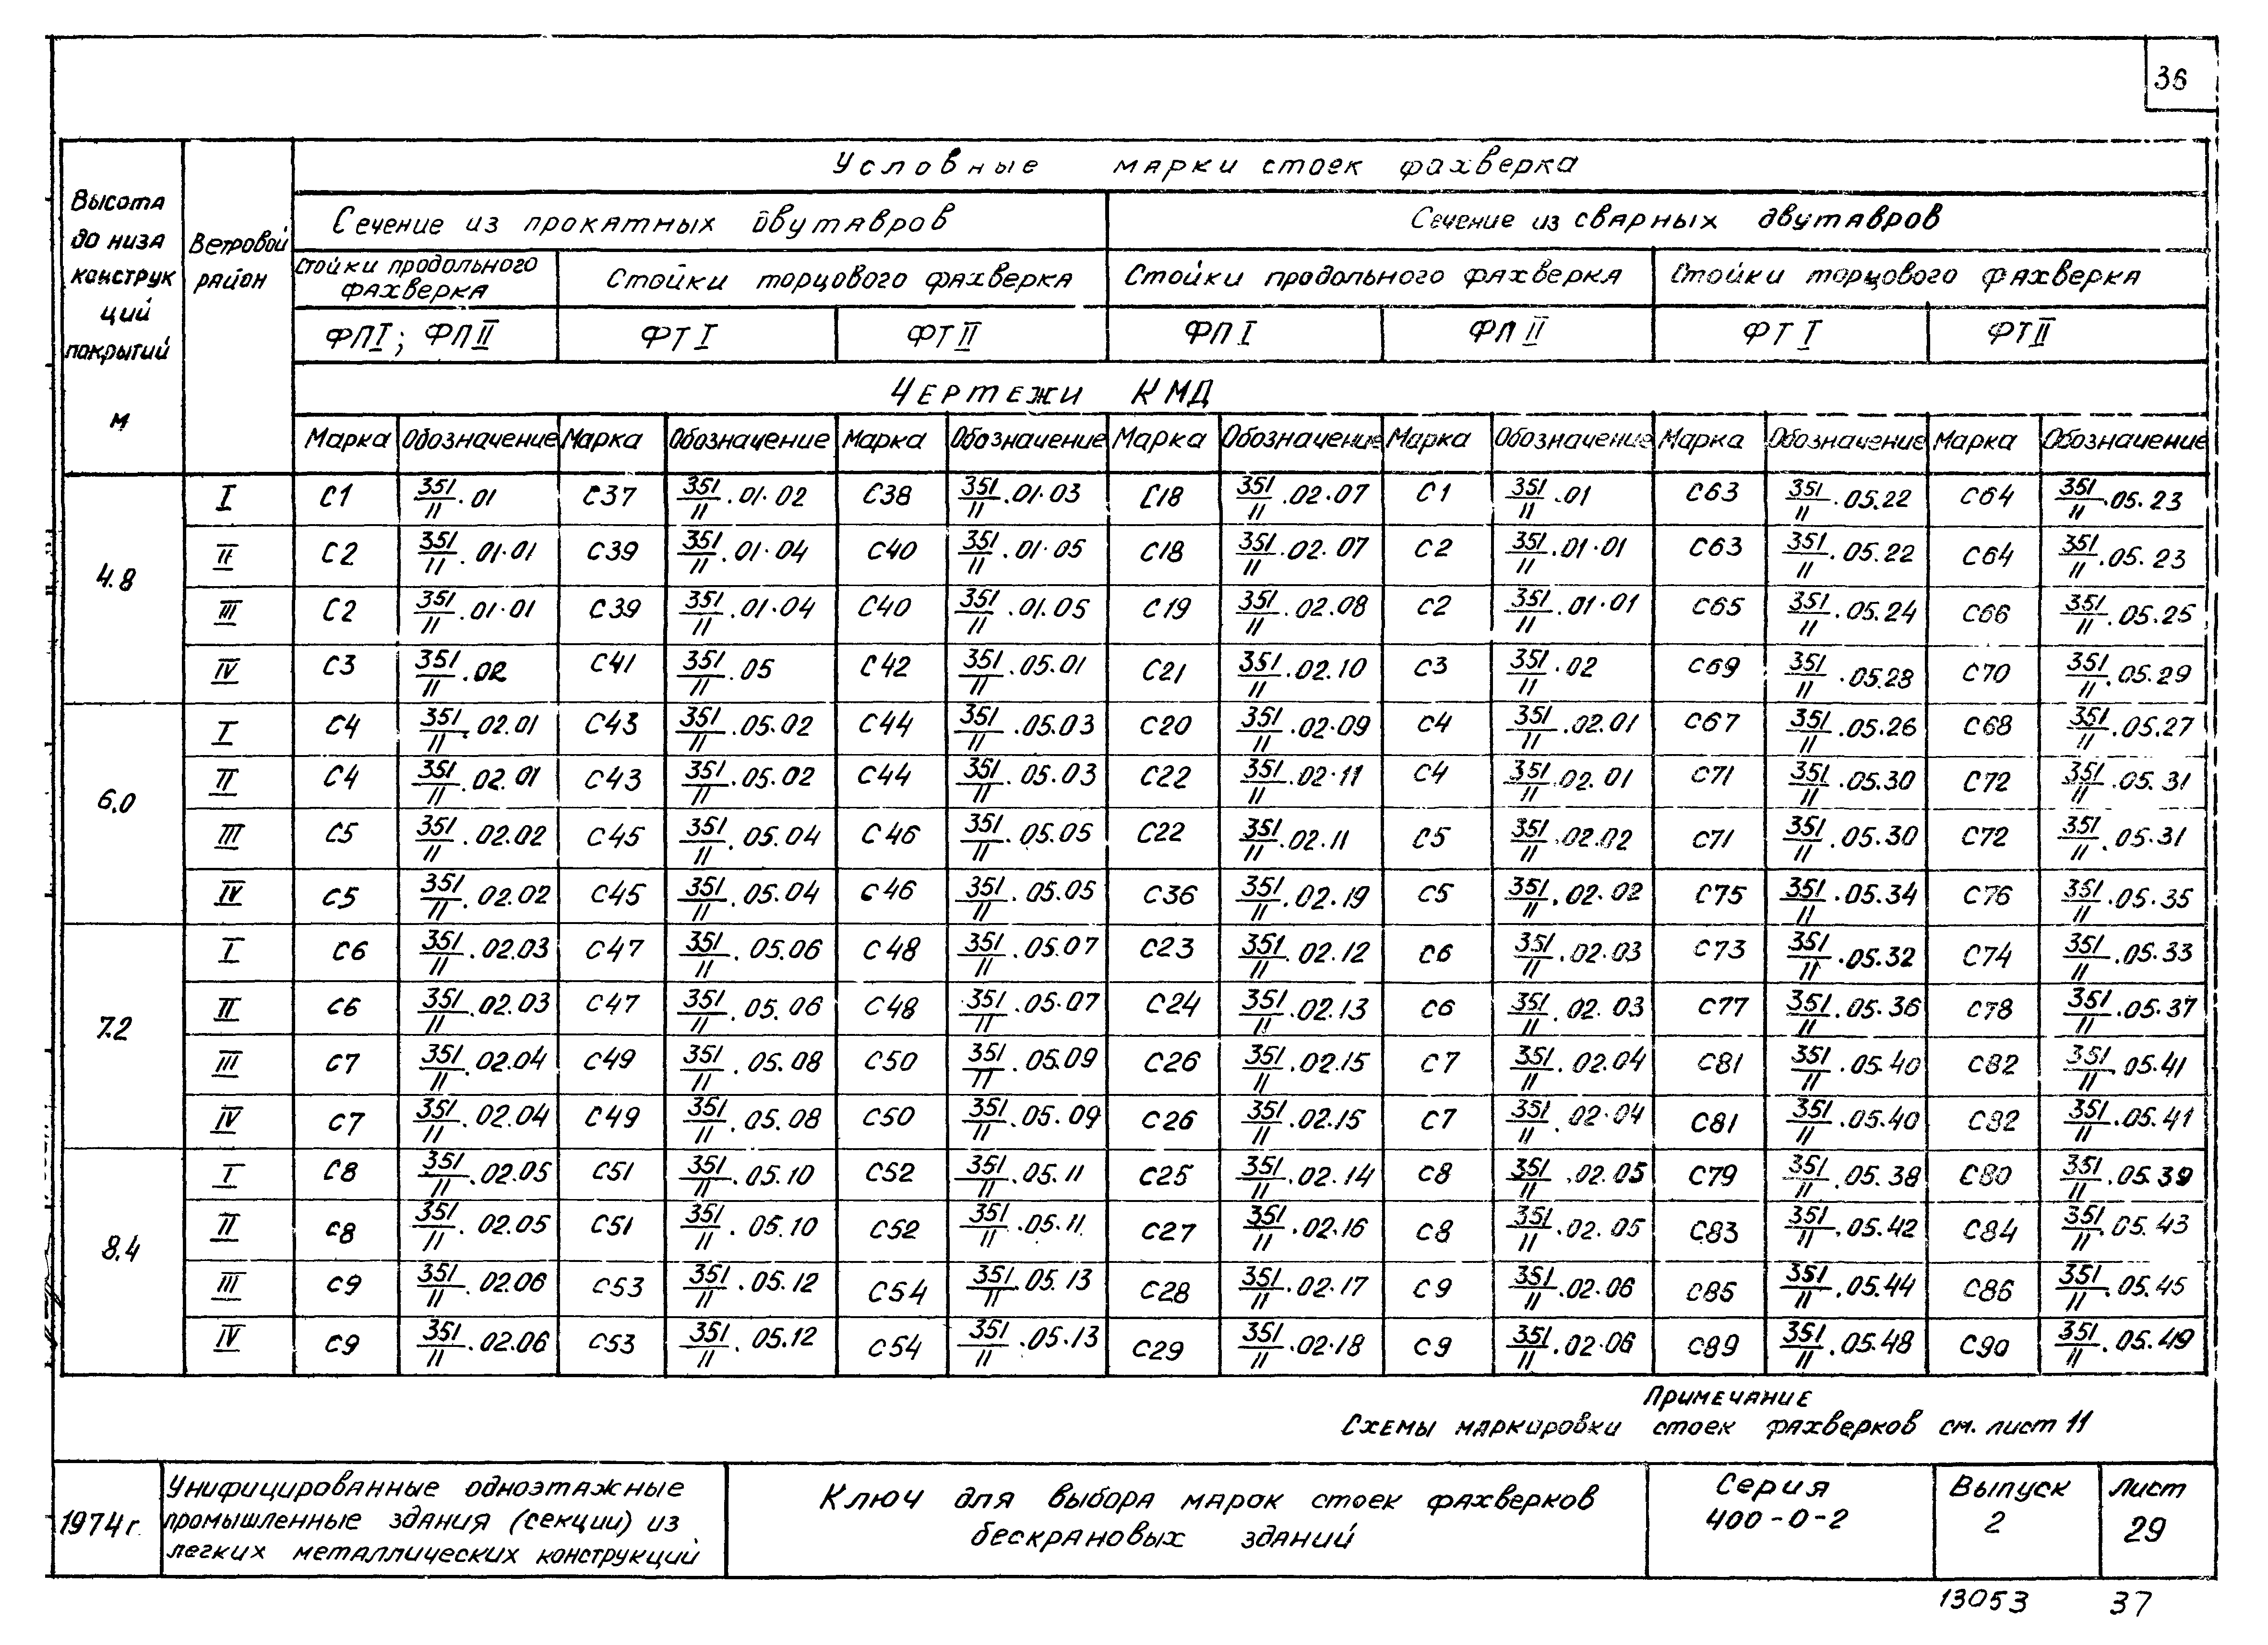 36
Условные марки стоек фахверка
Высота до низа конструк ций покрытий м
Ветровой район
Сечение из прокатных двутавров
Сечение из сварных двутавров
Стойки продольного фахверка
Стойки торцового фахверка
Стойки продольного фахверка
Стойки торцового фахверка
ФПI; ФПII
ФТI
ФТII
ФПI
ФПII
ФТI
ФТII
Чертежи КМД
Марка Обозначение Марка Обозначение Марка Обозначение Марка Обозначение Марка Обозначение Марка Обозначение Марка Обозначение
4.8
I С1 351/II.01 С37 351/II.01.02 С38 351/II.01.03 С18 351/II.02.07 С1 351/II.01 С63 351/II.05.22 С64 351/II.05.23
II С2 351/II.01.01 С39 351/II.01.04 С40 351/II.01.05 С18 351/II.02.07 С2 351/II.01.01 С63 351/II.05.22 С64 351/II.05.23
III С2 351/II.01.01 С39 351/II.01.04 С40 351/II.01.05 С19 351/II.02.08 С2 351/II.01.01 С65 351/II.05.24 С66 351/II.05.25
IV С3 351/II.02 С41 351/II.05 С42 351/II.05.01 С21 351/II.02.10 С3 351/II.02 С69 351/II.05.28 С70 351/II.05.29
6.0
I С4 351/II.02.01 С43 351/II.05.02 С44 351/II.05.03 С20 351/II.02.09 С4 351/II.02.01 С67 351/II.05.26 С68 351/II.05.27
II С4 351/II.02.01 С43 351/II.05.02 С44 351/II.05.03 С22 351/II.02.11 С4 351/II.02.01 С71 351/II.05.30 С72 351/II.05.31
III С5 351/II.02.02 С45 351/II.05.04 С46 351/II.05.05 С22 351/II.02.11 С5 351/II.02.02 С71 351/II.05.30 С72 351/II.05.31
IV С5 351/II.02.02 С45 351/II.05.04 С46 351/II.05.05 С36 351/II.02.19 С5 351/II.02.02 С75 351/II.05.34 С76 351/II.05.35
7.2
I С6 351/II.02.03 С47 351/II.05.06 С48 351/II.05.07 С23 351/II.02.12 С6 351/II.02.03 С73 351/II.05.32 С74 351/II.05.33
II С6 351/II.02.03 С47 351/II.05.06 С48 351/II.05.07 С24 351/II.02.13 С6 351/II.02.03 С77 351/II.05.36 С78 351/II.05.37
III С7 351/II.02.04 С49 351/II.05.08 С50 351/II.05.09 С26 351/II.02.15 С7 351/II.02.04 С81 351/II.05.40 С82 351/II.05.41
IV С7 351/II.02.04 С49 351/II.05.08 С50 351/II.05.09 С26 351/II.02.15 С7 351/II.02.04 С81 351/II.05.40 С82 351/II.05.41
8.4
I С8 351/II.02.05 С51 351/II.05.10 С52 351/II.05.11 С25 351/II.02.14 С8 351/II.02.05 С79 351/II.05.38 С80 351/II.05.39
II С8 351/II.02.05 С51 351/II.05.10 С52 351/II.05.11 С27 351/II.02.16 С8 351/II.02.05 С83 351/II.05.42 С84 351/II.05.43
III С9 351/II.02.06 С53 351/II.05.12 С54 351/II.05.13 С28 351/II.02.17 С9 351/II.02.06 С85 351/II.05.44 С86 351/II.05.45
IV С9 351/II.02.06 С53 351/II.05.12 С54 351/II.05.13 С29 351/II.02.18 С9 351/II.02.06 С89 351/II.05.48 С90 351/II.05.49
Примечание
Схемы маркировки стоек фахверков см. лист 11
1974г.
Унифицированные одноэтажные
промышленные здания (секции) из
легких металлических конструкций
Ключ для выбора марок стоек фахверков
бескрановых зданий
Серия
400-0-2
Выпуск
2
Лист
29
13053 37